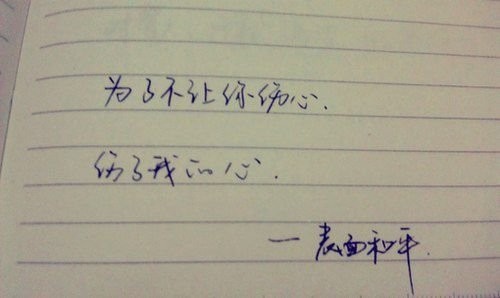 为了不让你伤心.
伤了我的心.
—表面和平.